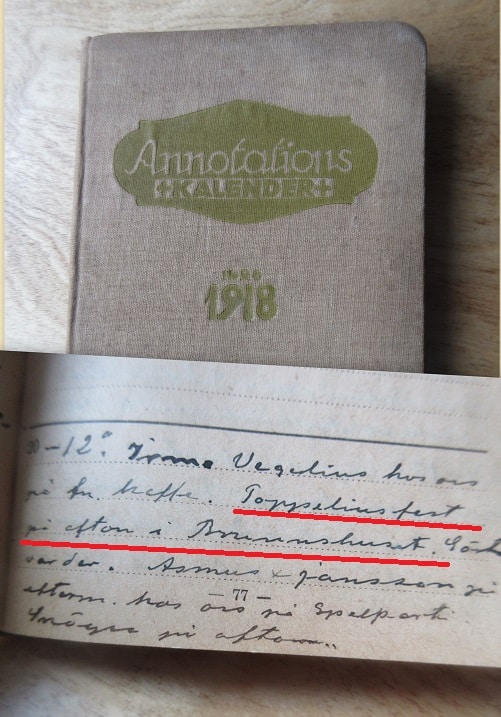 Annotations
KALENDER
1918
-12°. Irma Vegelius hos oss
på fm. kaffe. Toppeliusfest
på afton i Brunnshuset.
väder. Asmus & Jansson på
- 77 -
efterm. hos oss på Spelparti.
Snöyra på aftonen.